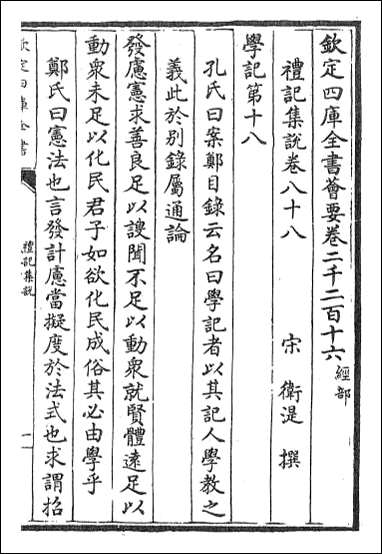 欽定四庫全書薈要卷二千二百十六 經部
禮記集說卷八十八 宋 衛湜 撰
學記第十八
孔氏曰案鄭目錄云名曰學記者以其記人學教之
義此於別錄屬通論
發慮憲求善良足以謏聞不足以動衆就賢體遠足以
動衆未足以化民君子如欲化民成俗其必由學乎
鄭氏曰憲法也言發計慮當擬度於法式也求謂招
欽定四庫全書
禮記集說
一